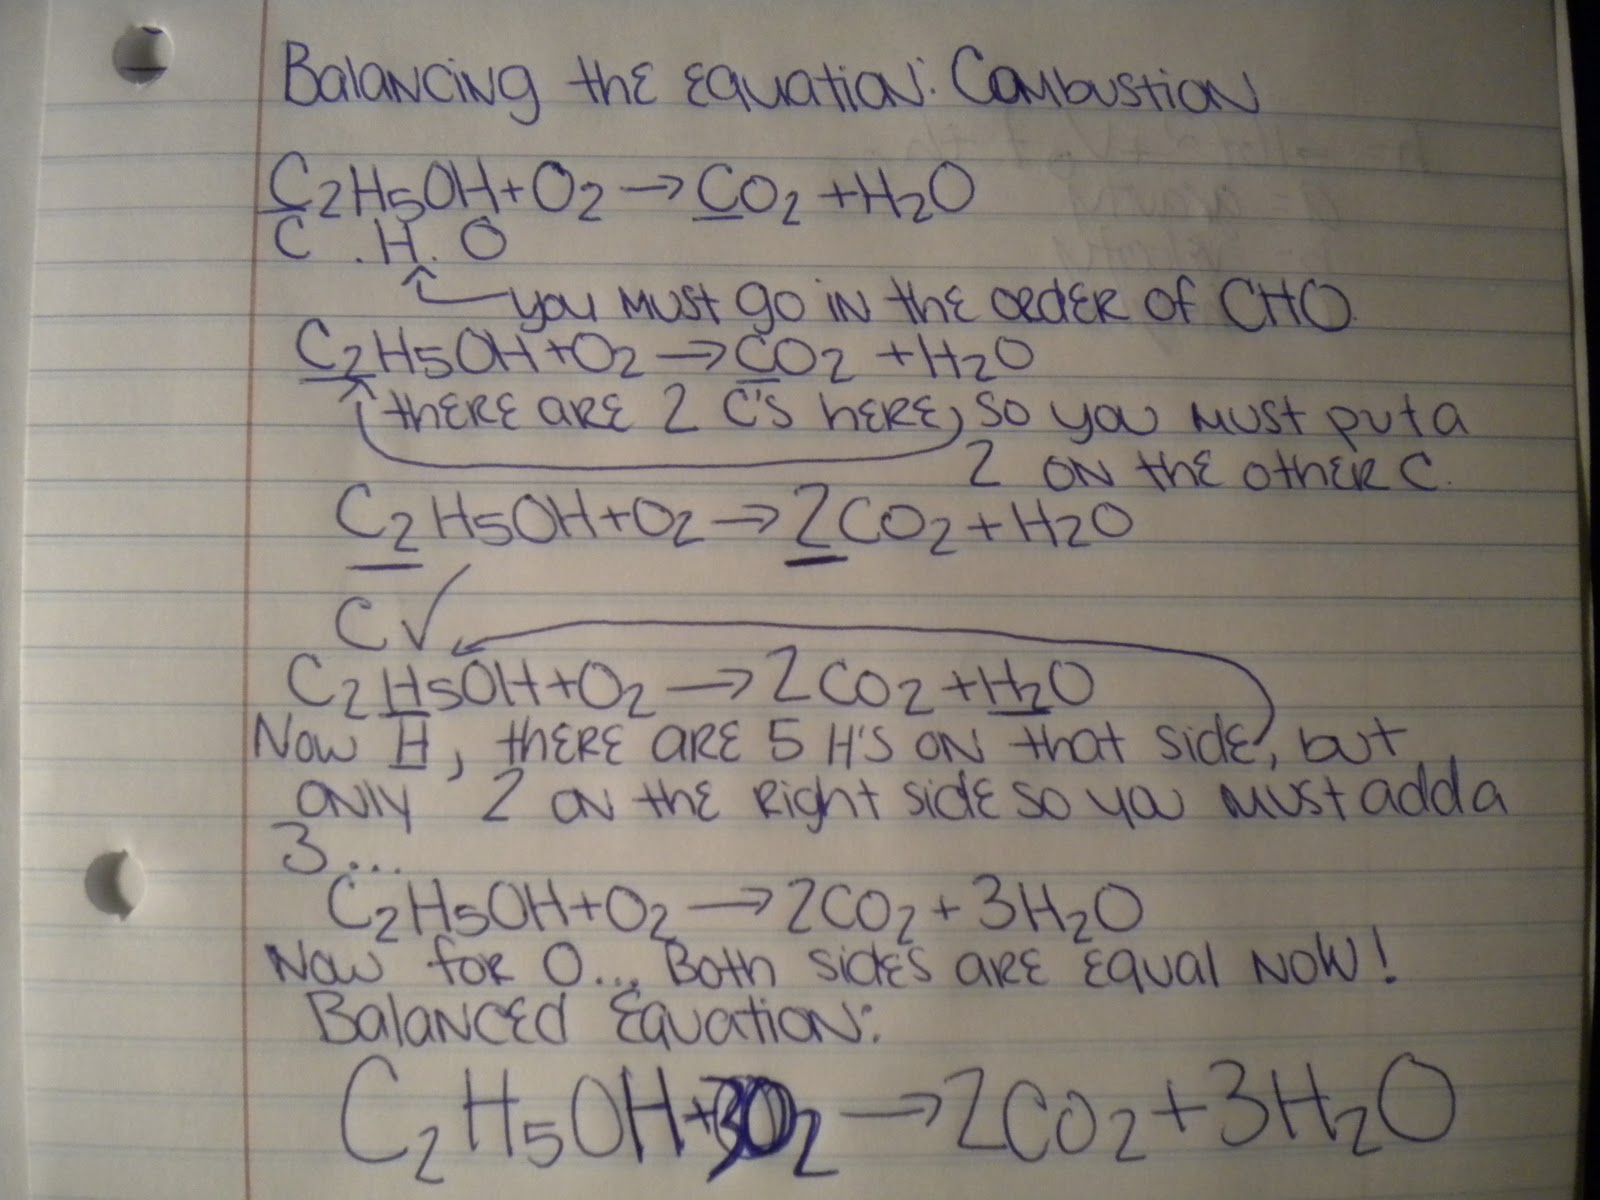 Balancing the Equation: Combustion
C2H5OH+O2→CO2+H2O
C . H . O
you must go in the order of CHO
C2H5OH+O2→CO2+H2O
there are 2 C's here, so you must put a
2 on the other C.
C2H5OH+O2→2CO2+H2O
C✓
C2H5OH+O2→2CO2+H2O
Now H, there are 5 H's on that side, but
only 2 on the right side so you must add a
3...
C2H5OH+O2→2CO2+3H2O
Now for O... Both sides are equal now!
Balanced Equation:
C2H5OH+3O2→2CO2+3H2O